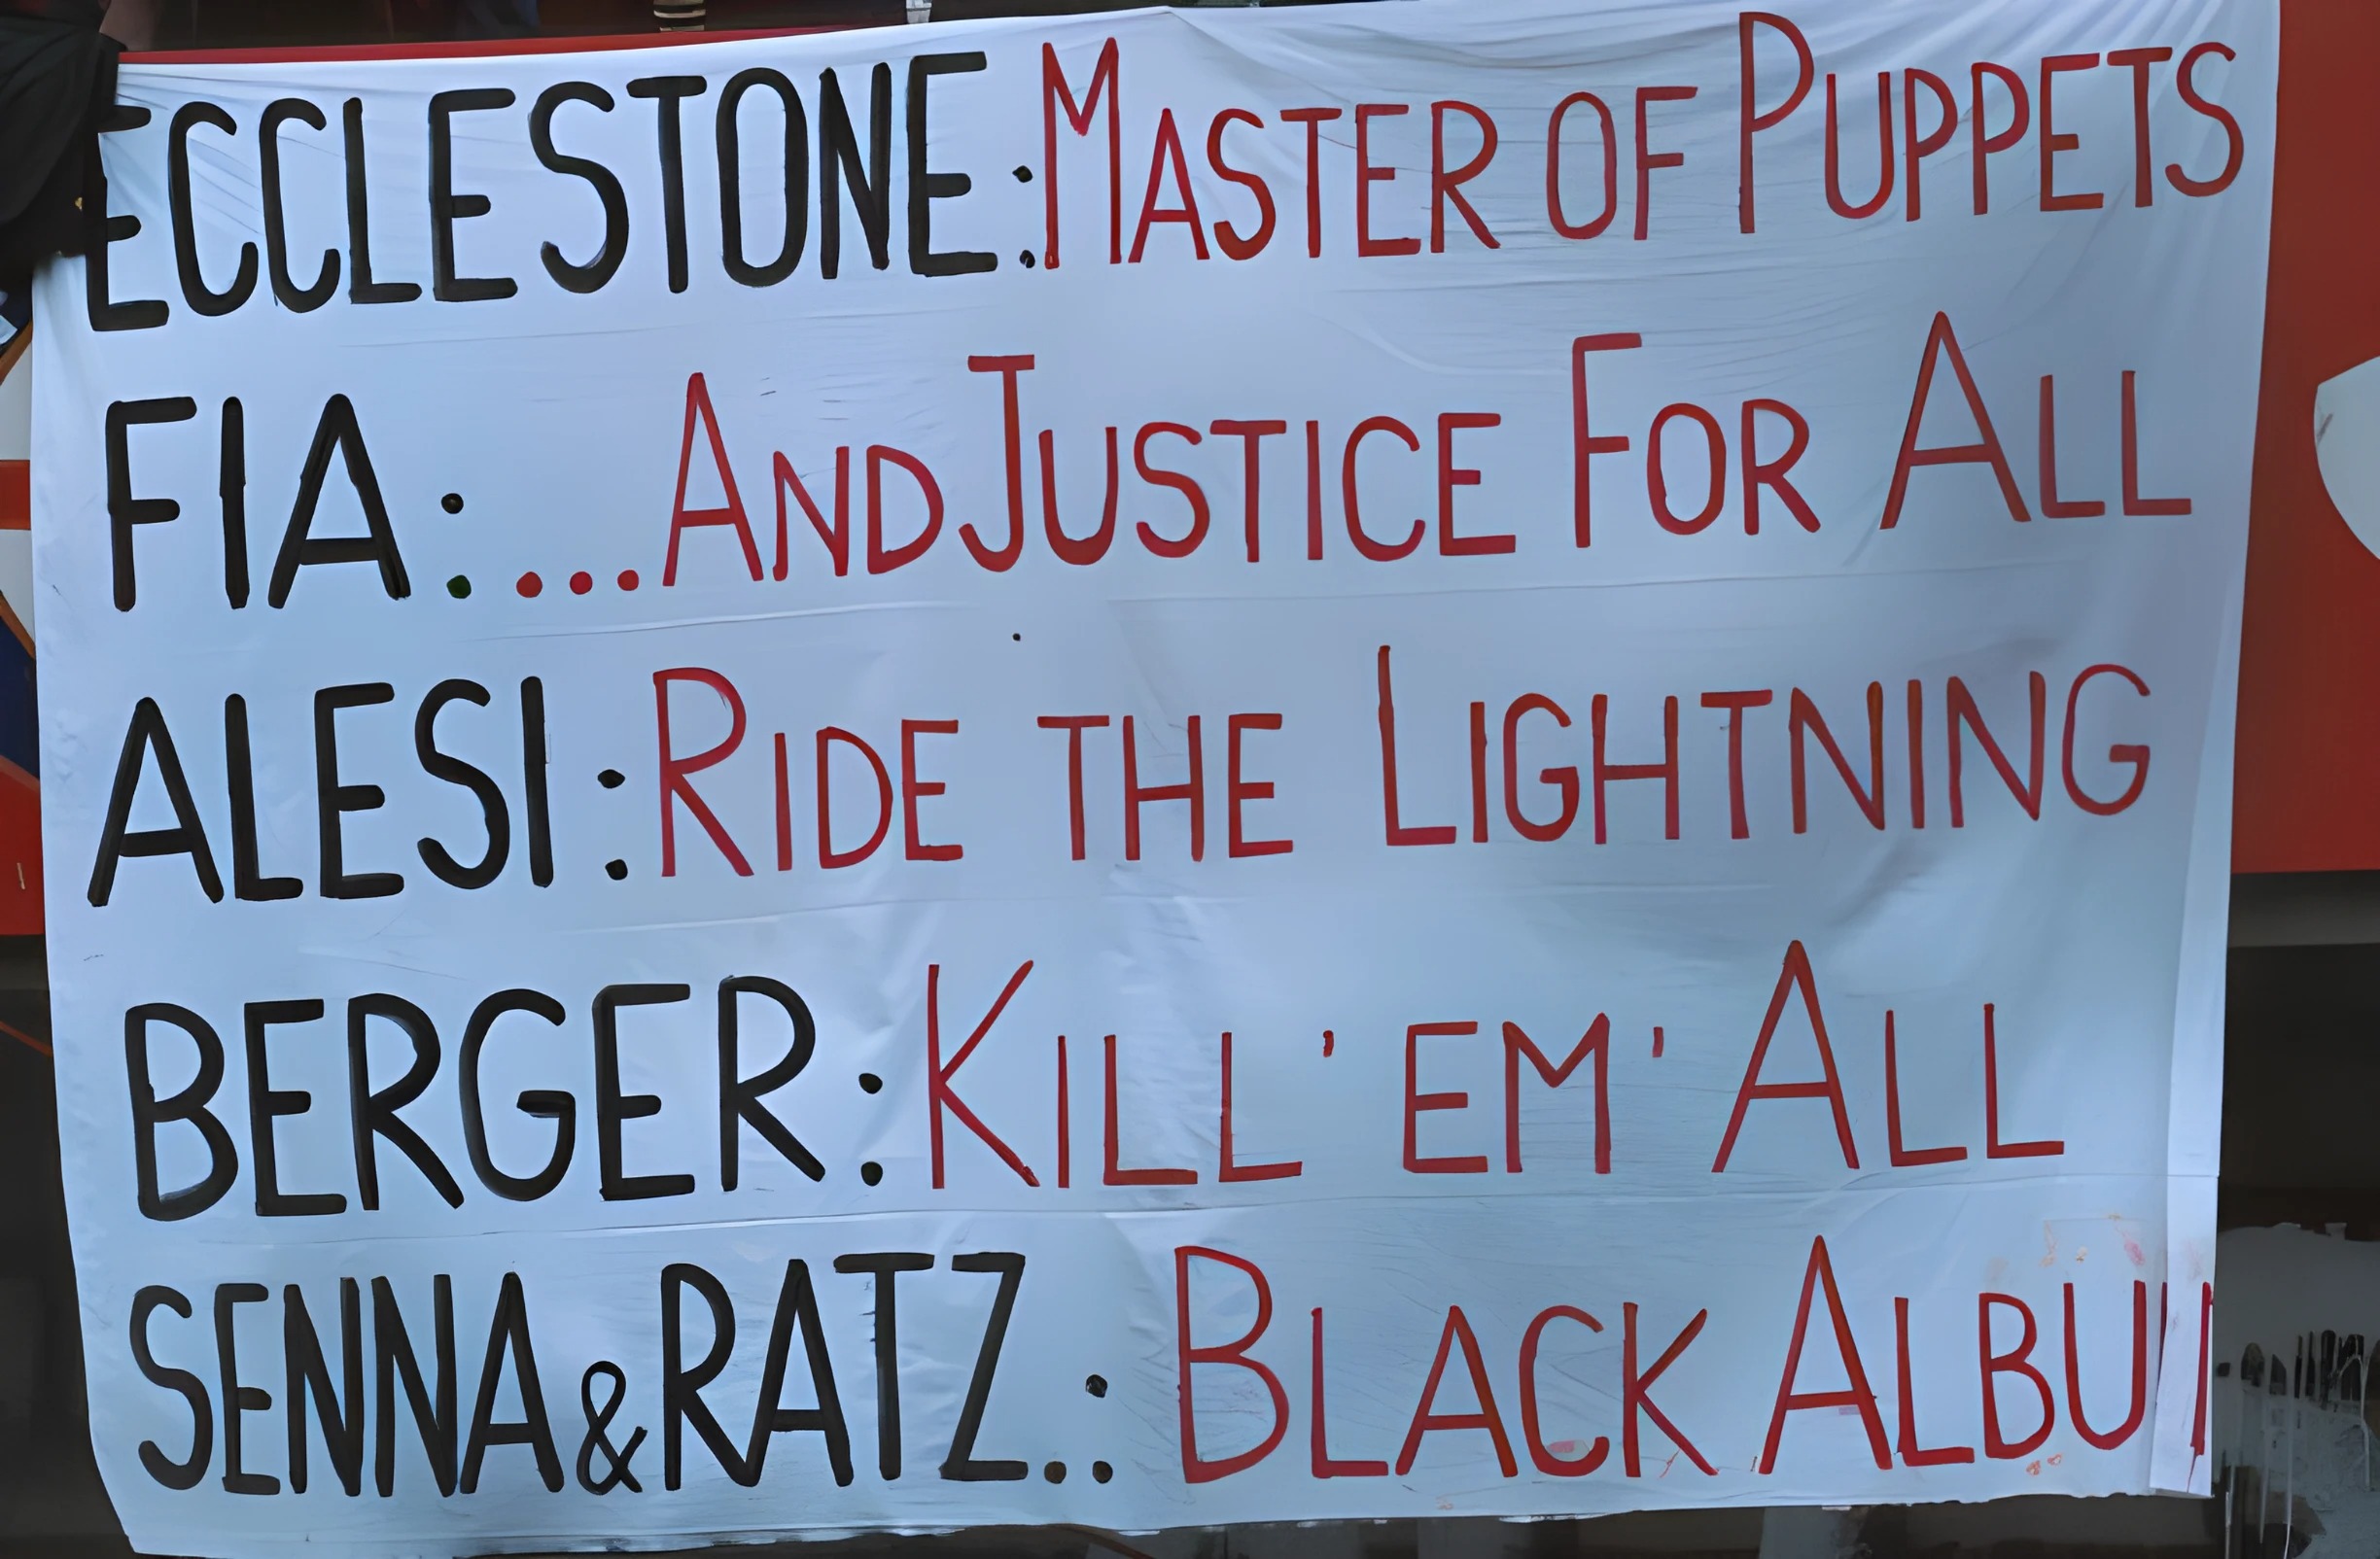 ECCLESTONE: MASTER OF PUPPETS
FIA: ...AND JUSTICE FOR ALL
ALESI: RIDE THE LIGHTNING
BERGER: KILL 'EM' ALL
SENNA & RATZ.: BLACK ALBUM